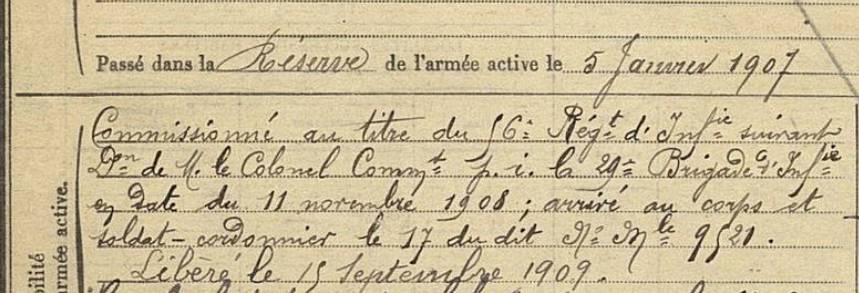 Passé dans la Réserve de l'armée active le 5 Janvier 1907
Commissionné au titre du 56e Régt d'Infie suivant
Don de M. le Colonel Commt p. i. la 29e Brigade d'Infie
en date du 11 novembre 1908 ; arrivé au corps et
soldat-cordonnier le 17 du dit No Mle 9521.
Libéré le 15 Septembre 1909.
bilité
armée active.